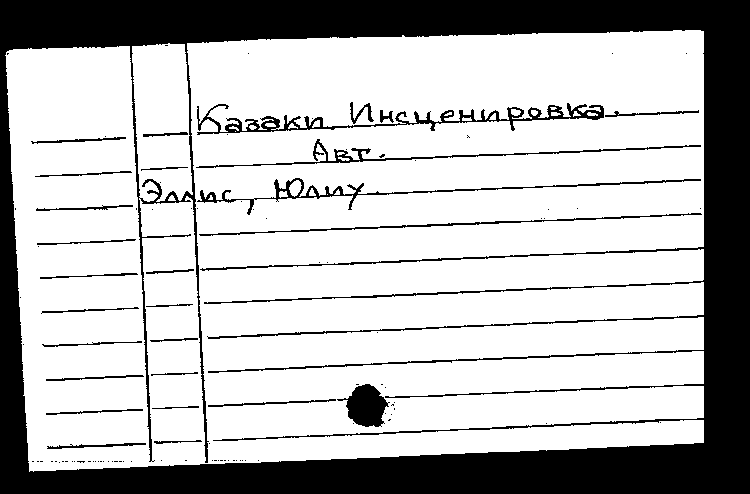 Казаки. Инсценировка.
Авт.
Эллис, Юлиу.